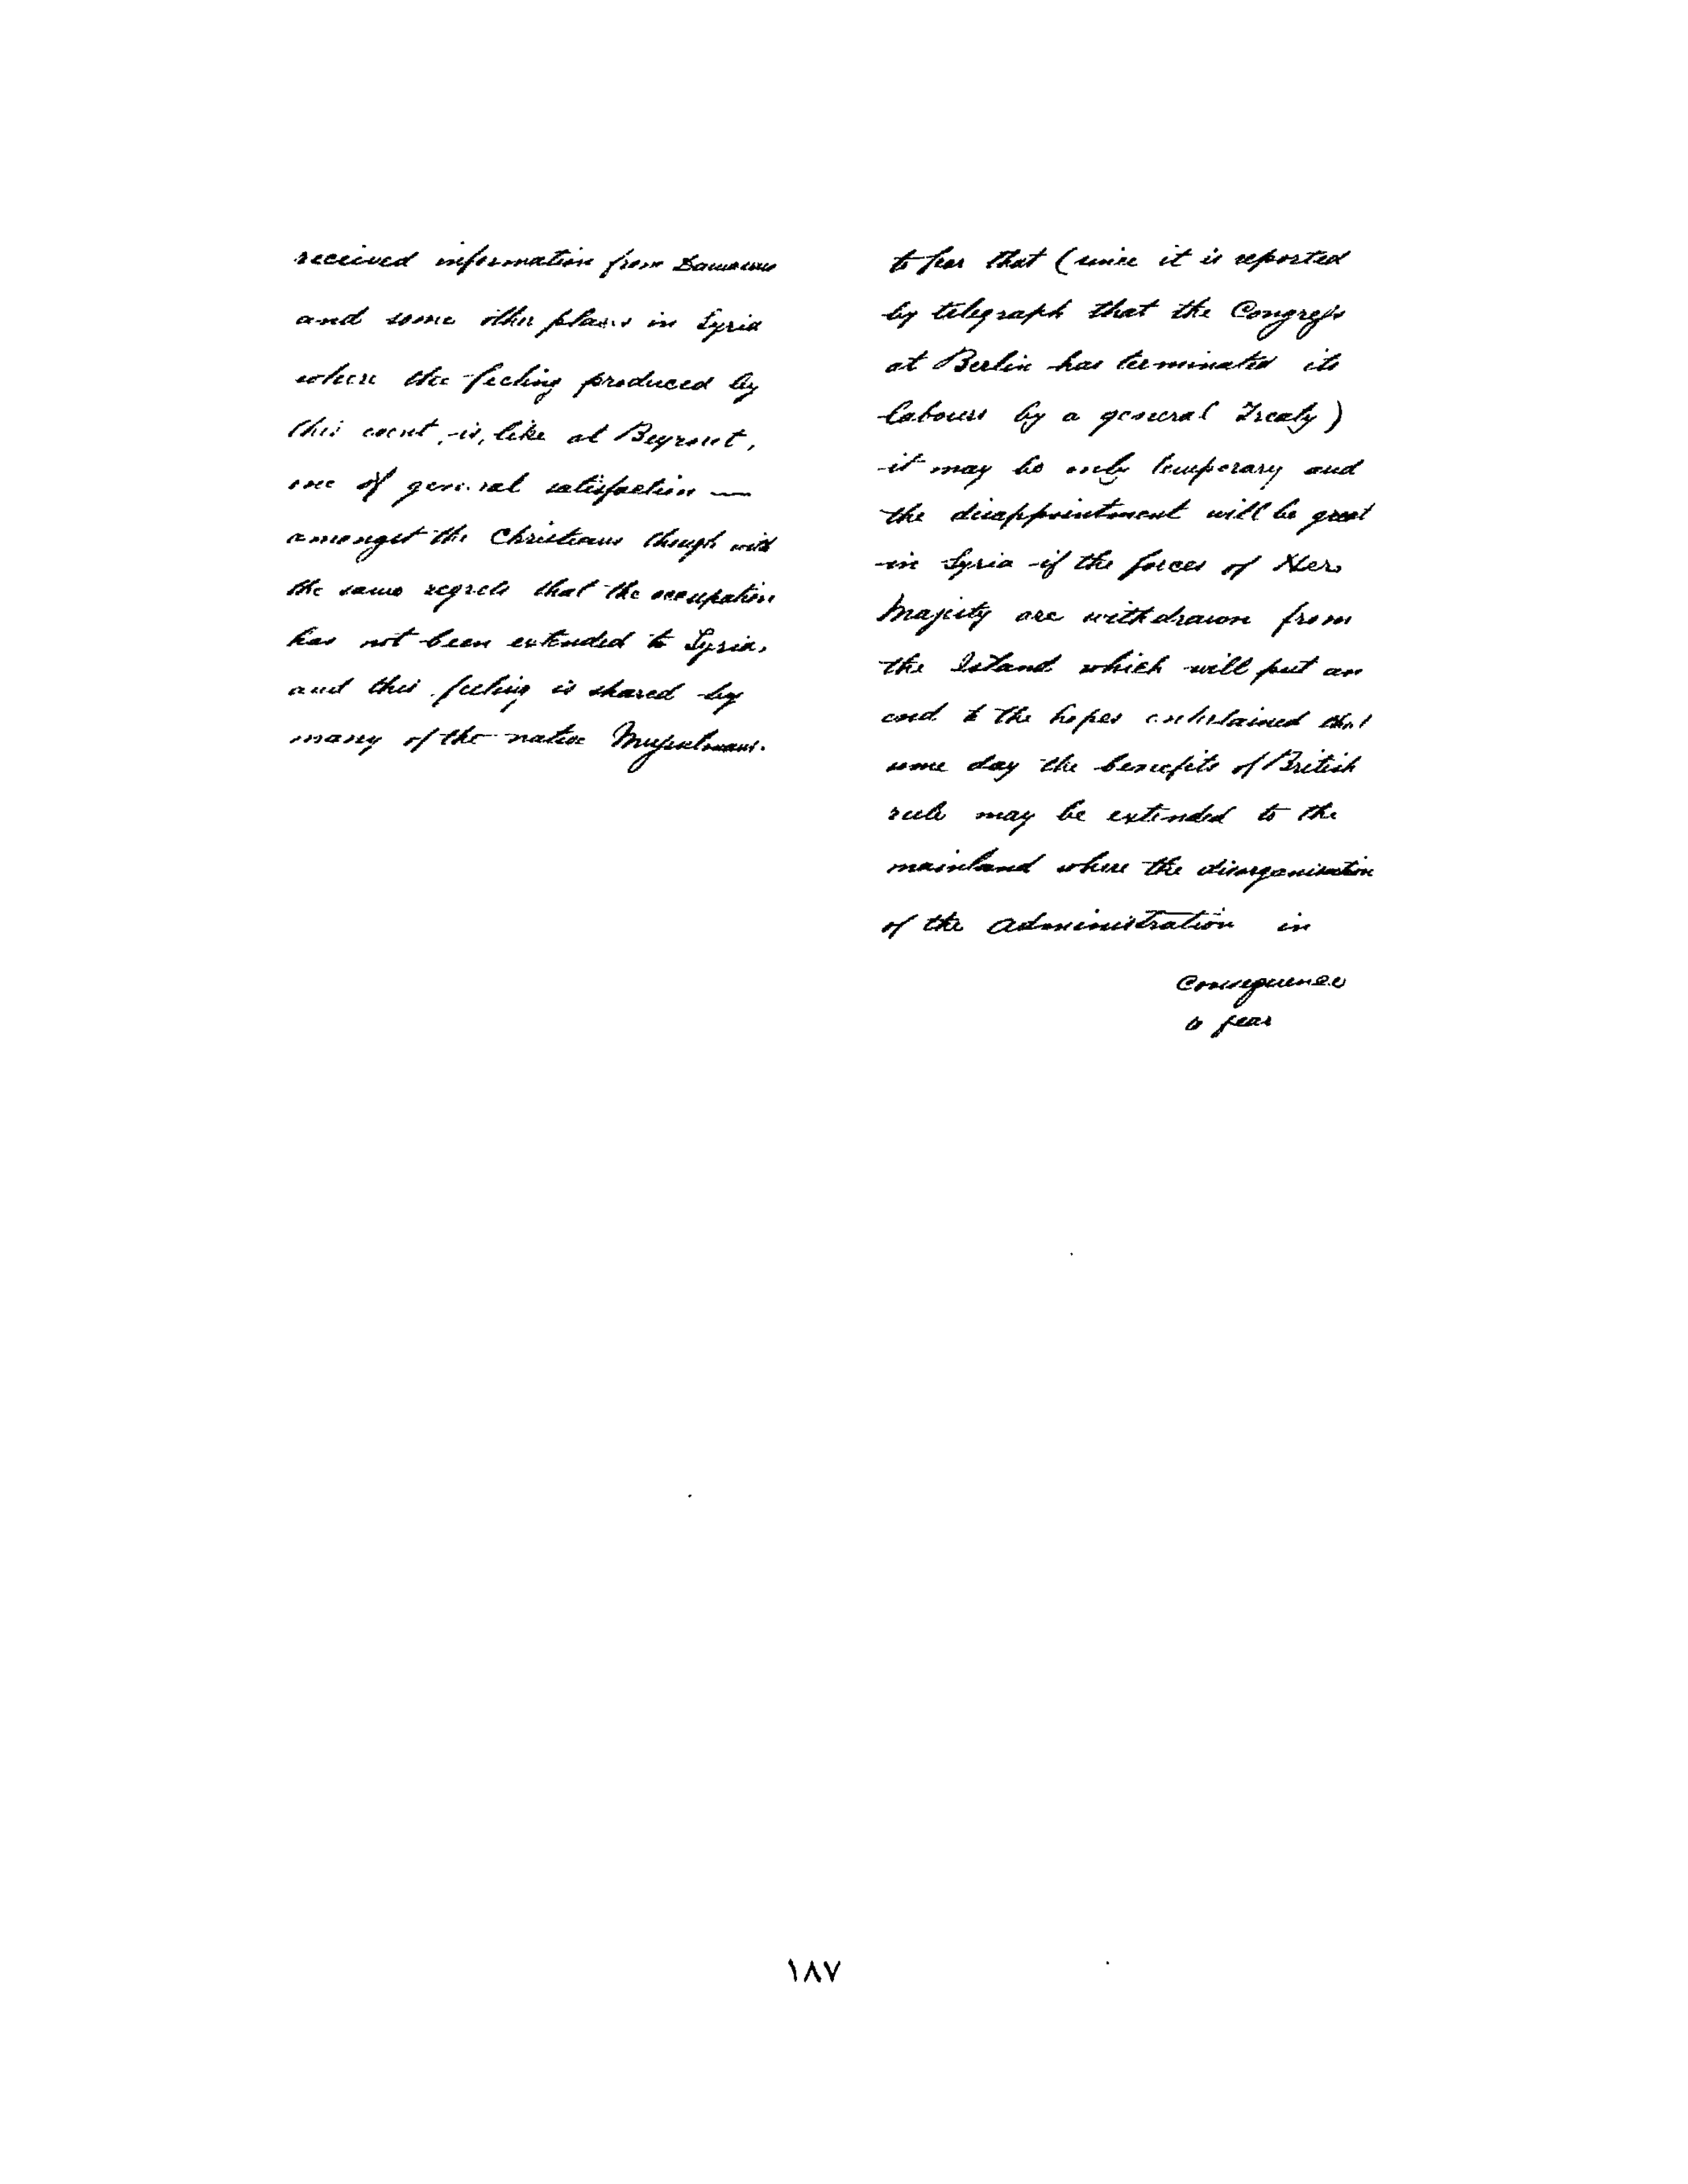 received information from Damascus
and some other places in Syria
where the feeling produced by
this event, is, like at Beyrout,
one of general satisfaction —
amongst the Christians though with
the same regrets that the occupation
has not been extended to Syria,
and this feeling is shared by
many of the native Mussulmans.
to fear that (since it is reported
by telegraph that the Congress
at Berlin has terminated its
labours by a general Treaty)
it may be only temporary and
the disappointment will be great
in Syria if the forces of Her
Majesty are withdrawn from
the Island which will put an
end to the hopes entertained that
some day the benefits of British
rule may be extended to the
mainland where the disorganisation
of the Administration in
Consequence
to fear
١٨٧